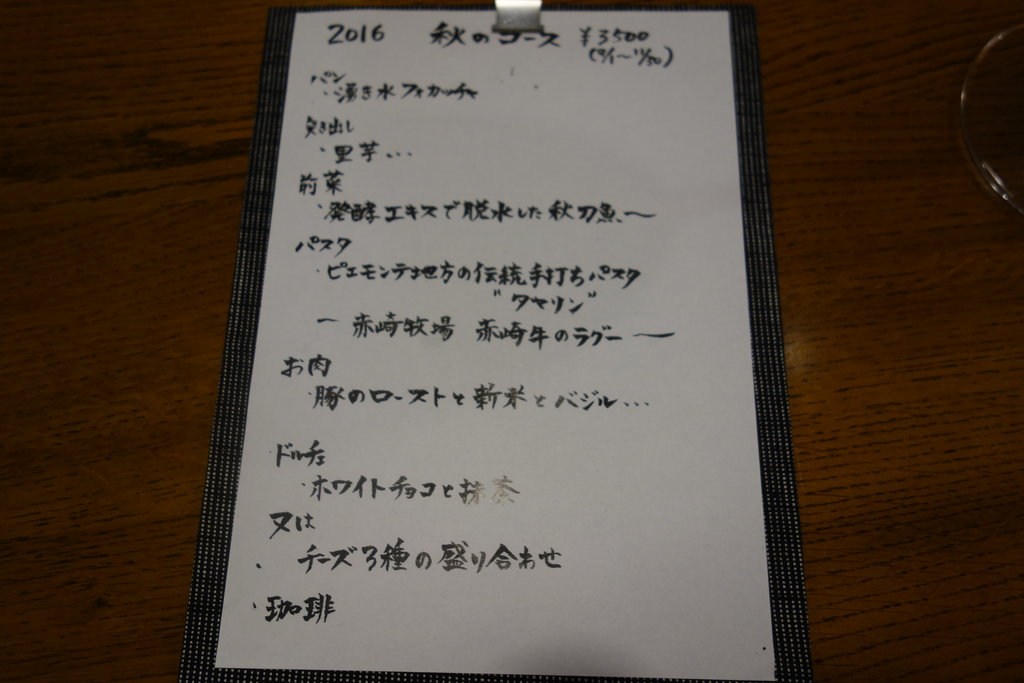 2016 秋のコース ¥3500
(9/1〜11/30)
パン
・湧き水フォカッチャ
突き出し
・里芋...
前菜
・発酵エキスで脱水した秋刀魚〜
パスタ
・ピエモンテ地方の伝統手打ちパスタ
"タヤリン"
ー 赤崎牧場 赤崎牛のラグー ー
お肉
・豚のローストと新米とバジル...
ドルチェ
・ホワイトチョコと抹茶
又は
・チーズ3種の盛り合わせ
・珈琲